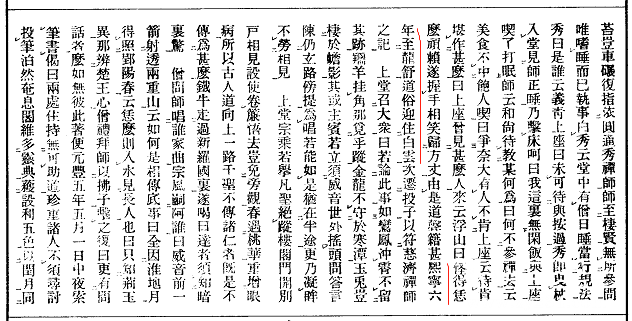 苔豈車碾復指依圓通秀禪師師至棲賢無所參問
唯嗜睡而已執事白秀云堂中有僧日睡當行規法
秀曰是誰云義青上座曰未可待與按過秀即曳杖
入堂見師正睡乃擊床呵曰我這裏無閑飯與上座
喫了打眠師云和尚待教某何爲曰何不參禪去云
美食不中飽人喫曰爭奈大有人不肯上座云待肯
堪作甚麼曰上座曾見甚麼人來云浮山曰怪得恁
麼頑賴遂握手相笑歸方丈由是聲籍甚熙寧六
年至龍舒道俗迎住白雲次遷投子以符慈濟禪師
之記 上堂召大衆曰若論此事如鸞鳳沖霄不留
其跡羚羊掛角那覓乎蹤金龍不守於寒潭玉兔豈
棲於蟾影其或主賓若立須威音世外搖頭問答言
陳仍玄路傍提爲唱若能如是猶在半途更乃凝眸
不勞相見 上堂宗乘若舉凡聖絕蹤樓閣門開別
戶相見設使卷簾悟去豈免旁觀春遇桃華重增眼
病所以古人道向上一路千聖不傳諸仁者既是不
傳爲甚麼鐵牛走過新羅國裏遂喝曰達者須知暗
裏驚 僧問師唱誰家曲宗風嗣阿誰曰威音前一
箭射透兩重山云如何是相傳底事曰全因淮地月
得照郢陽春云恁麼則入水見長人也曰只知荊玉
異那辨楚王心僧禮拜師以拂子擊之復曰更有問
話者麼如無彼此著便元豐五年五月一日中夜索
筆書偈曰兩處住持無可助道珍重諸人不須尋討
投筆泊然奄息闍維多靈異獲設利五色以閏月同